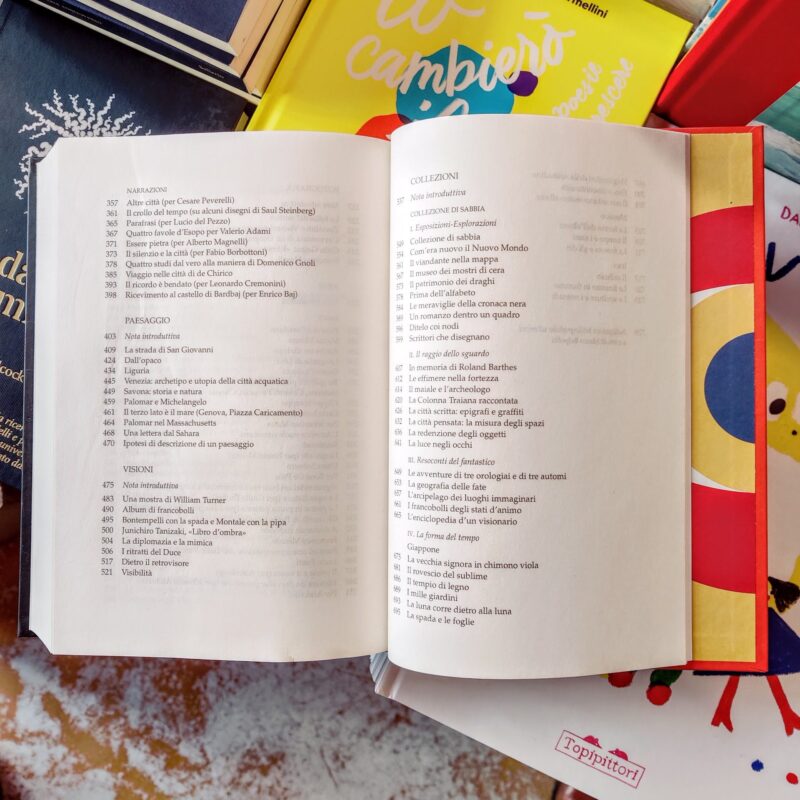 cambierò
poesie
NARRAZIONI
357 Altre città (per Cesare Peverelli)
361 Il crollo del tempo (su alcuni disegni di Saul Steinberg)
365 Parafrasi (per Lucio del Pezzo)
367 Quattro favole d'Esopo per Valerio Adami
371 Essere pietra (per Alberto Magnelli)
373 Il silenzio e la città (per Fabio Borbottoni)
378 Quattro studi dal vero alla maniera di Domenico Gnoli
385 Viaggio nelle città di de Chirico
393 Il ricordo è bendato (per Leonardo Cremonini)
398 Ricevimento al castello di Bardbaj (per Enrico Baj)
PAESAGGIO
403 Nota introduttiva
409 La strada di San Giovanni
424 Dall'opaco
434 Liguria
445 Venezia: archetipo e utopia della città acquatica
449 Savona: storia e natura
459 Palomar e Michelangelo
461 Il terzo lato è il mare (Genova, Piazza Caricamento)
464 Palomar nel Massachusetts
468 Una lettera dal Sahara
470 Ipotesi di descrizione di un paesaggio
VISIONI
475 Nota introduttiva
483 Una mostra di William Turner
490 Album di francobolli
495 Bontempelli con la spada e Montale con la pipa
500 Junichiro Tanizaki, «Libro d'ombra»
504 La diplomazia e la mimica
506 I ritratti del Duce
517 Dietro il retrovisore
521 Visibilità
COLLEZIONI
537 Nota introduttiva
COLLEZIONE DI SABBIA
I. Esposizioni-Esplorazioni
549 Collezione di sabbia
554 Com'era nuovo il Nuovo Mondo
561 Il viandante nella mappa
567 Il museo dei mostri di cera
573 Il patrimonio dei draghi
578 Prima dell'alfabeto
584 Le meraviglie della cronaca nera
589 Un romanzo dentro un quadro
596 Ditelo coi nodi
599 Scrittori che disegnano
II. Il raggio dello sguardo
607 In memoria di Roland Barthes
612 Le effimere nella fortezza
614 Il maiale e l'archeologo
620 La Colonna Traiana raccontata
626 La città scritta: epigrafi e graffiti
632 La città pensata: la misura degli spazi
636 La redenzione degli oggetti
641 La luce negli occhi
III. Resoconti del fantastico
649 Le avventure di tre orologiai e di tre automi
653 La geografia delle fate
657 L'arcipelago dei luoghi immaginari
661 I francobolli degli stati d'animo
665 L'enciclopedia d'un visionario
IV. La forma del tempo
Giappone
675 La vecchia signora in chimono viola
681 Il rovescio del sublime
686 Il tempio di legno
689 I mille giardini
693 La luna corre dietro alla luna
695 La spada e le foglie
Topipittori